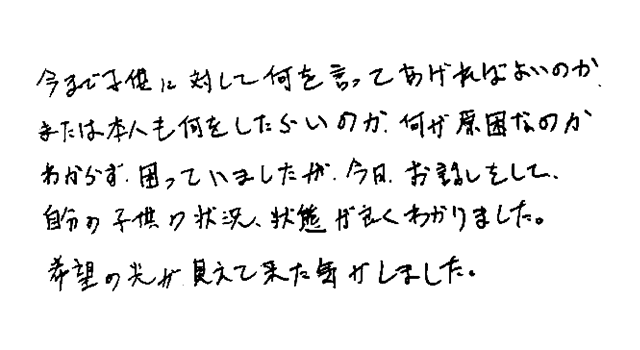 今まで子供に対して何を言ってあげればよいのか、
または本人も何をしたらいいのか、何が原因なのか
わからず、困っていましたが、今日、お話しをして、
自分の子供の状況、状態が良くわかりました。
希望の光が見えて来た気がしました。